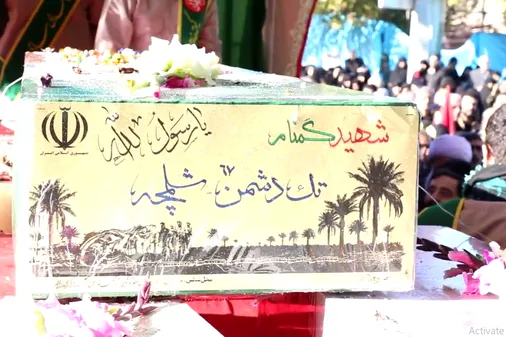 شهید گمنام
یا رسول الله
جمهوری اسلامی ایران
تک دشمن ۶۷ - شلمچه
Activate